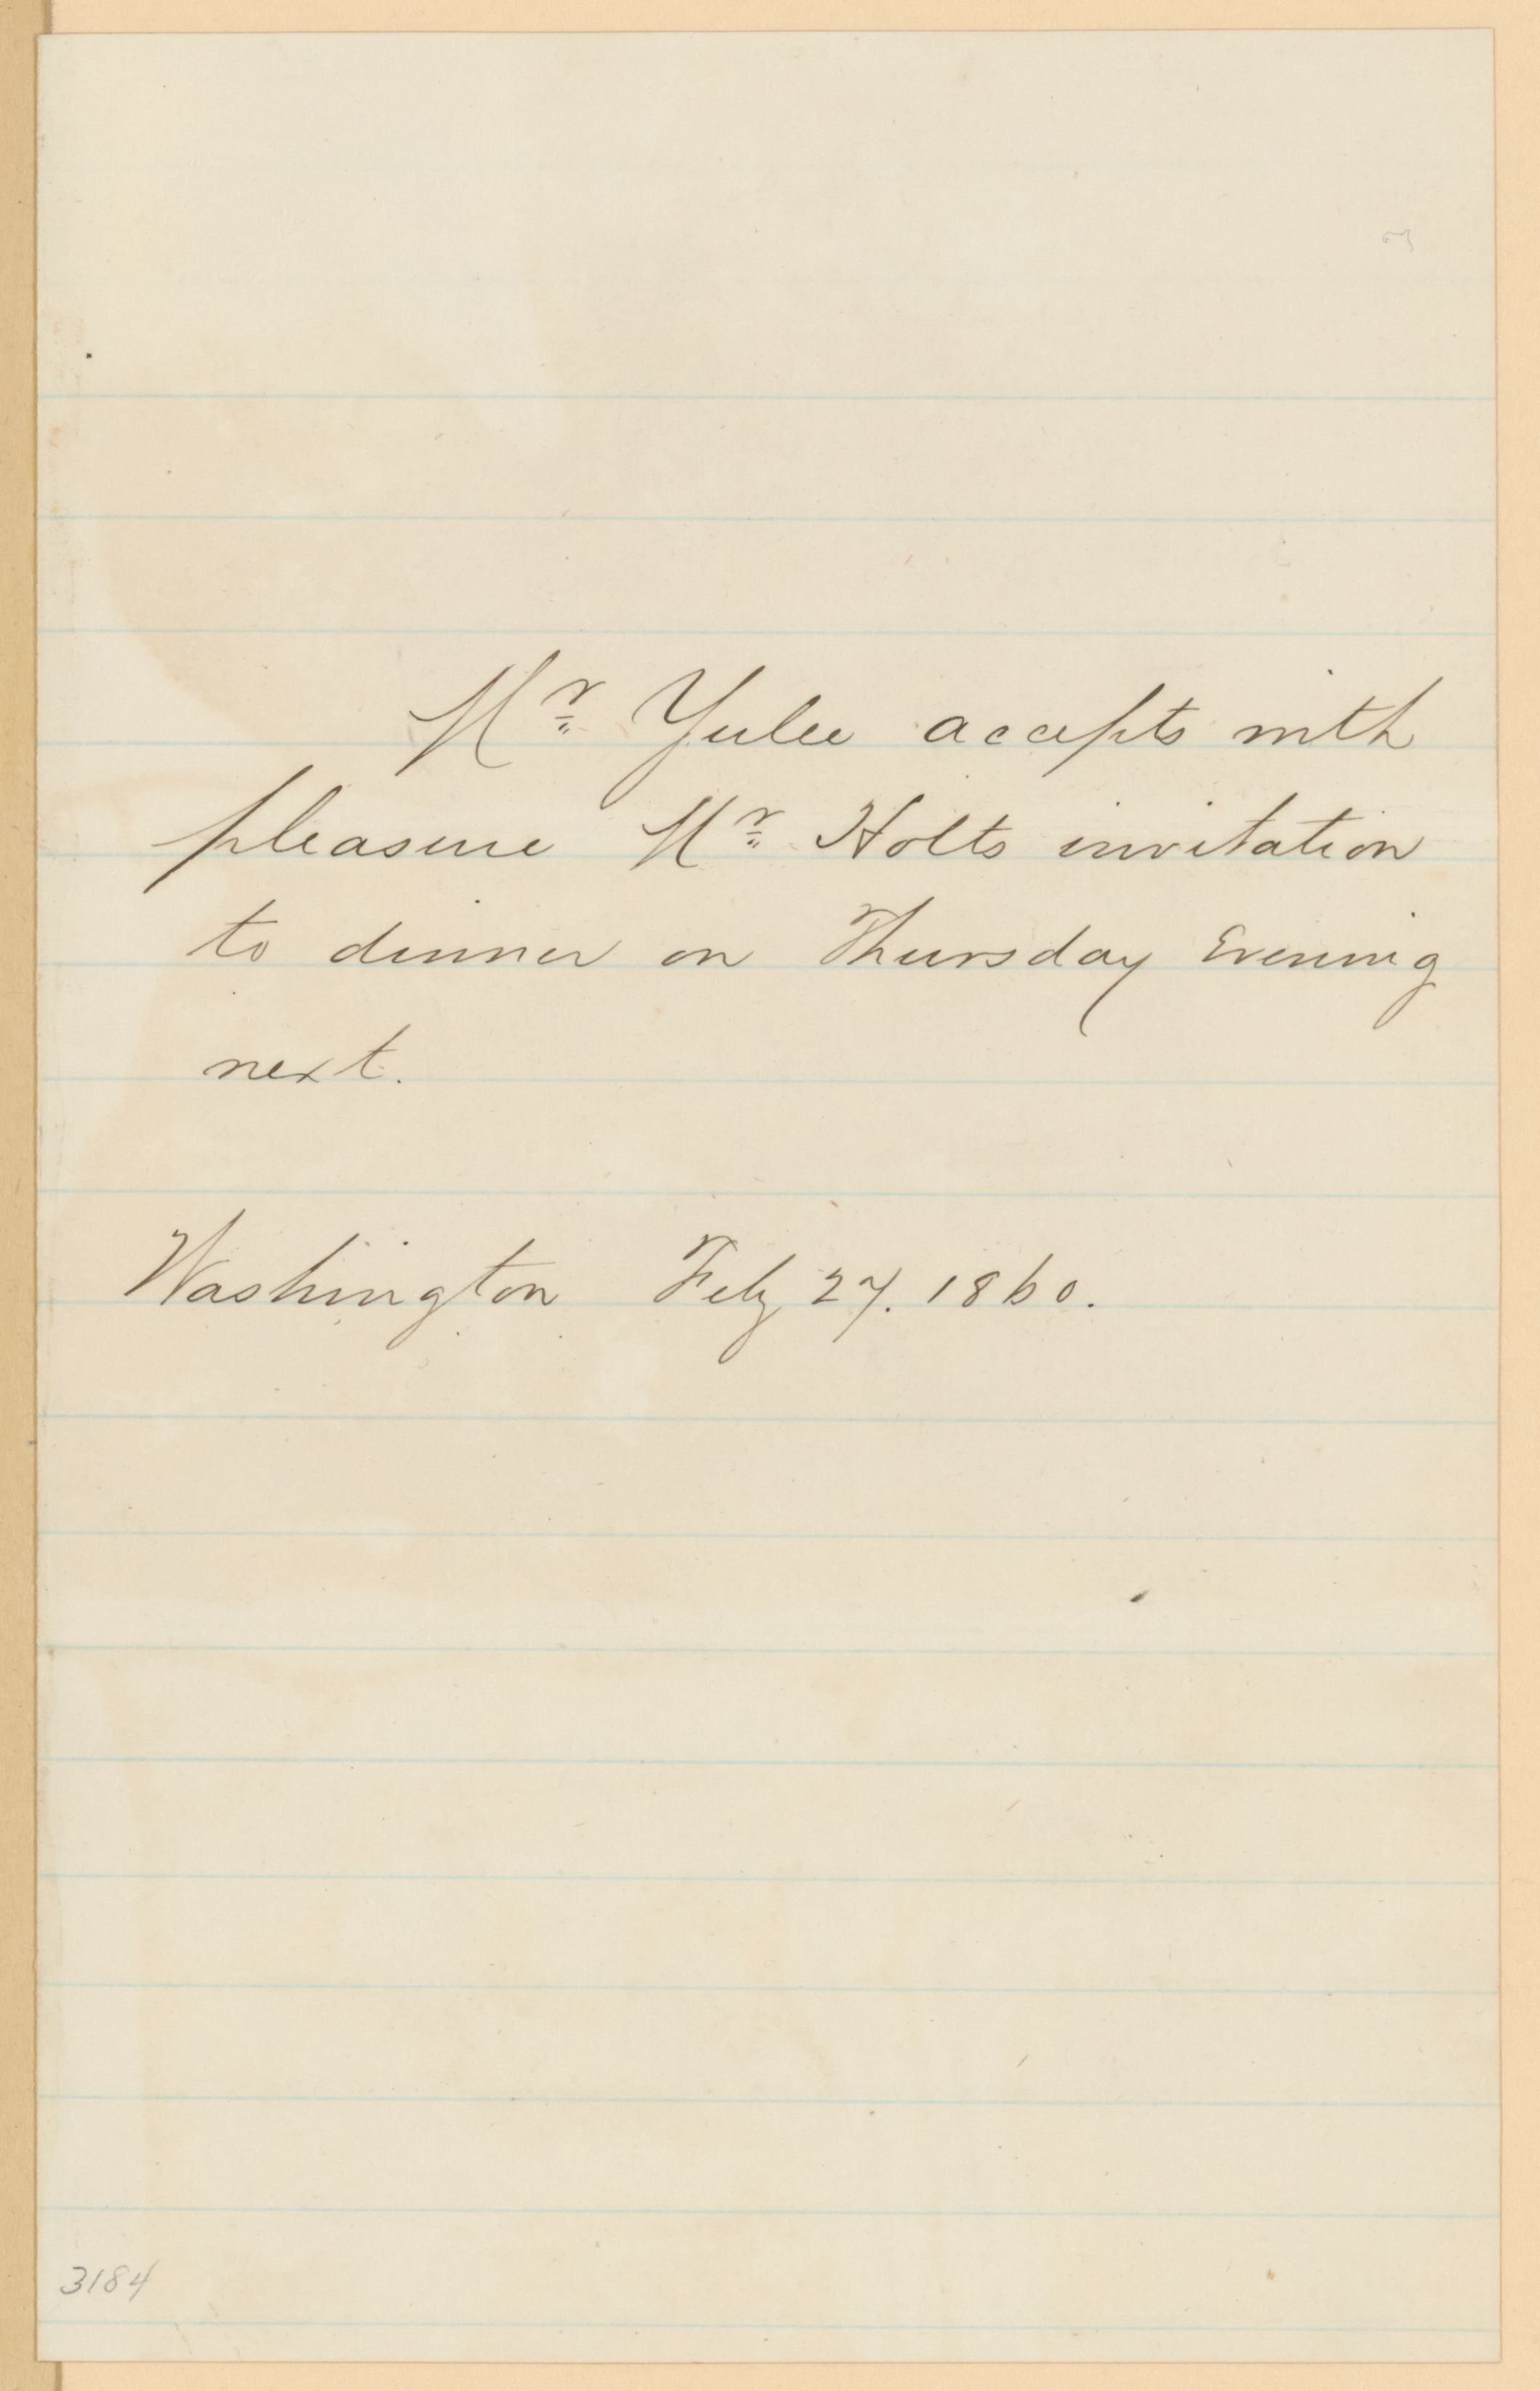 Mr Yulee accepts with
pleasure Mr Holts invitation
to dinner on Thursday Evening
next.
Washington Feby 27. 1860.
3184